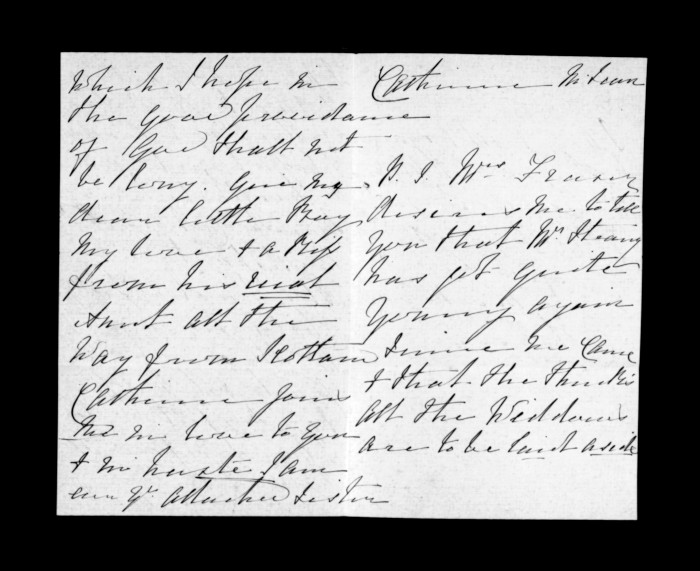 which I hope in
the good providance
of God shall not
be long. Give my
dear little Boy
my love & a Kiss
from his real
Aunt all the
way from Scotland
Catherine joins
me in love to you
& in haste I am
ever yr attached Sister
Catherine McLean
P.S. Mrs Fraser
desires me to tell
you that Mr Strang
has got quite
young again
since he came
& that she thinks
all the Widdows
are to be laid aside